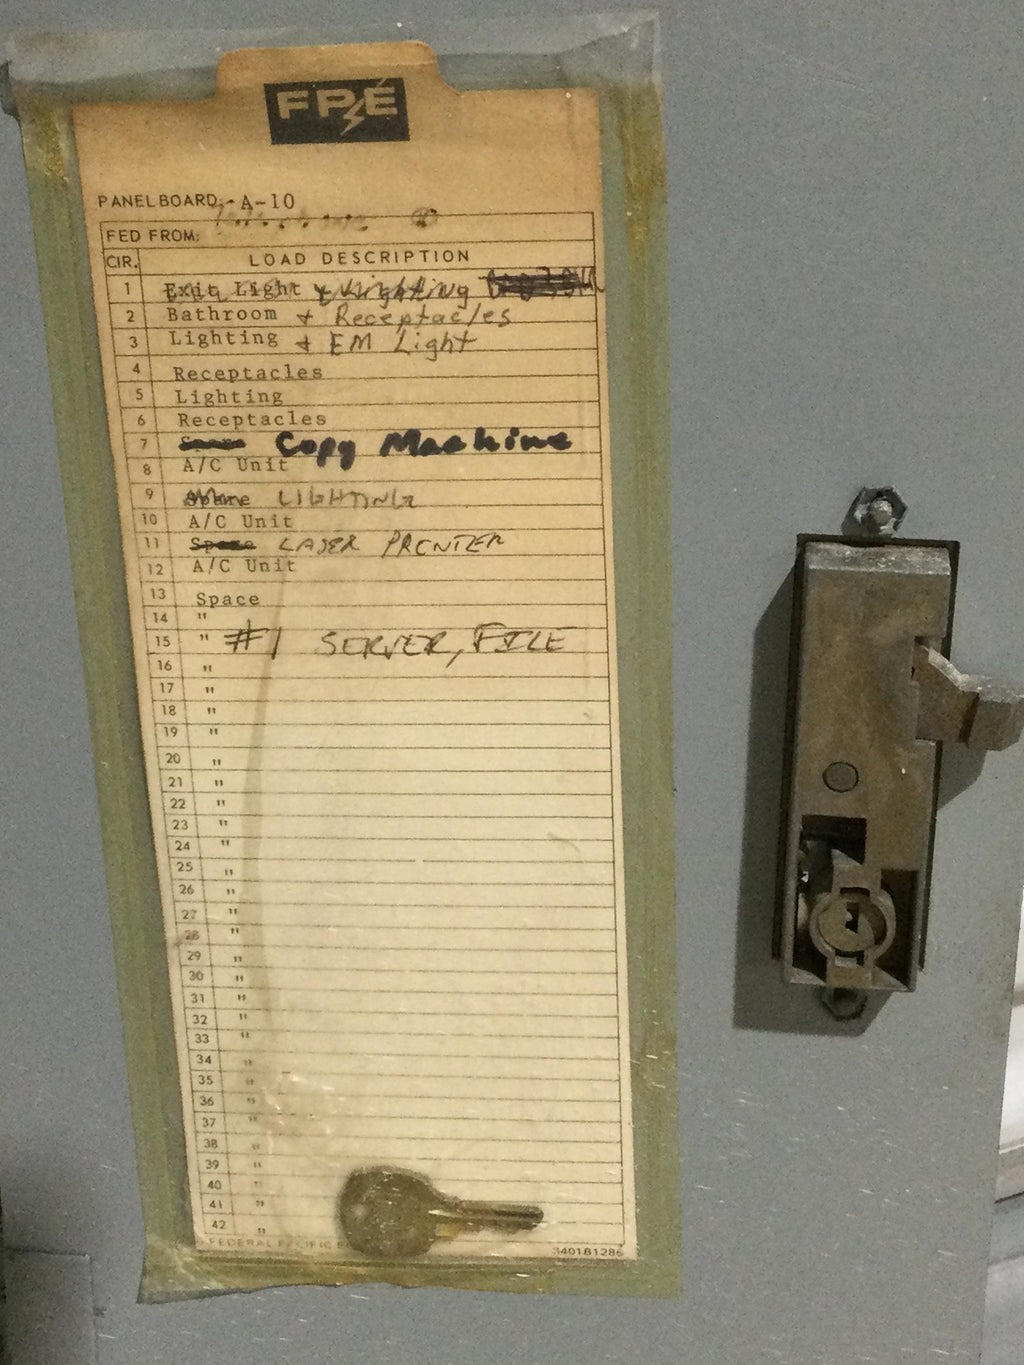 FPE
PANELBOARD: A-10
FED FROM:
CIR. LOAD DESCRIPTION
1 Exit Light & Lighting
2 Bathroom + Receptacles
3 Lighting + EM Light
4 Receptacles
5 Lighting
6 Receptacles
7 Space Copy Machine
8 A/C Unit
9 Space LIGHTING
10 A/C Unit
11 Space LASER PRINTER
12 A/C Unit
13 Space
14 "
15 " #1 SERVER, FILE
16 "
17 "
18 "
19 "
20 "
21 "
22 "
23 "
24 "
25 "
26 "
27 "
28 "
29 "
30 "
31 "
32 "
33 "
34 "
35 "
36 "
37 "
38 "
39 "
40 "
41 "
42 "
FEDERAL PACIFIC 340181286